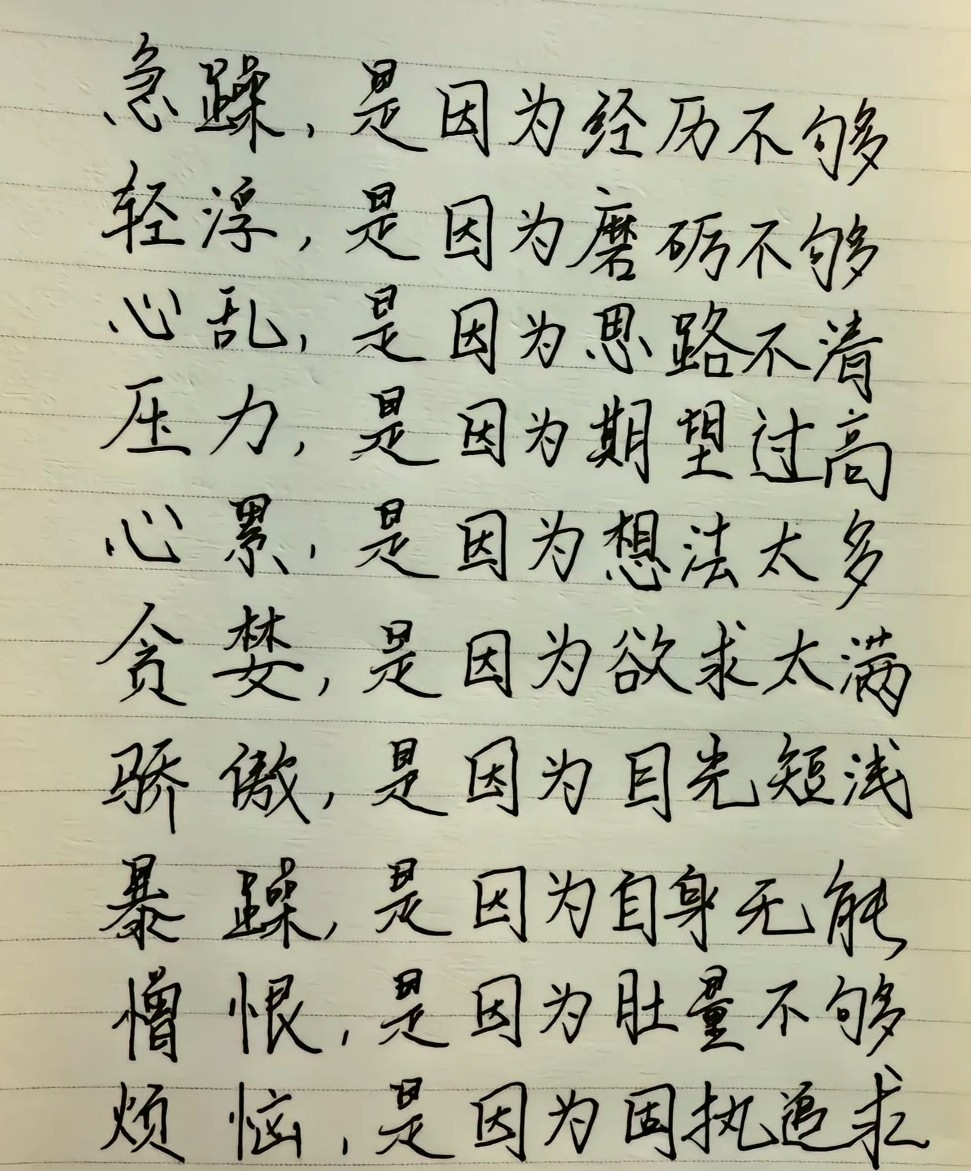 急躁，是因为经历不够
轻浮，是因为磨砺不够
心乱，是因为思路不清
压力，是因为期望过高
心累，是因为想法太多
贪婪，是因为欲求太满
骄傲，是因为目光短浅
暴躁，是因为自身无能
憎恨，是因为肚量不够
烦恼，是因为固执追求